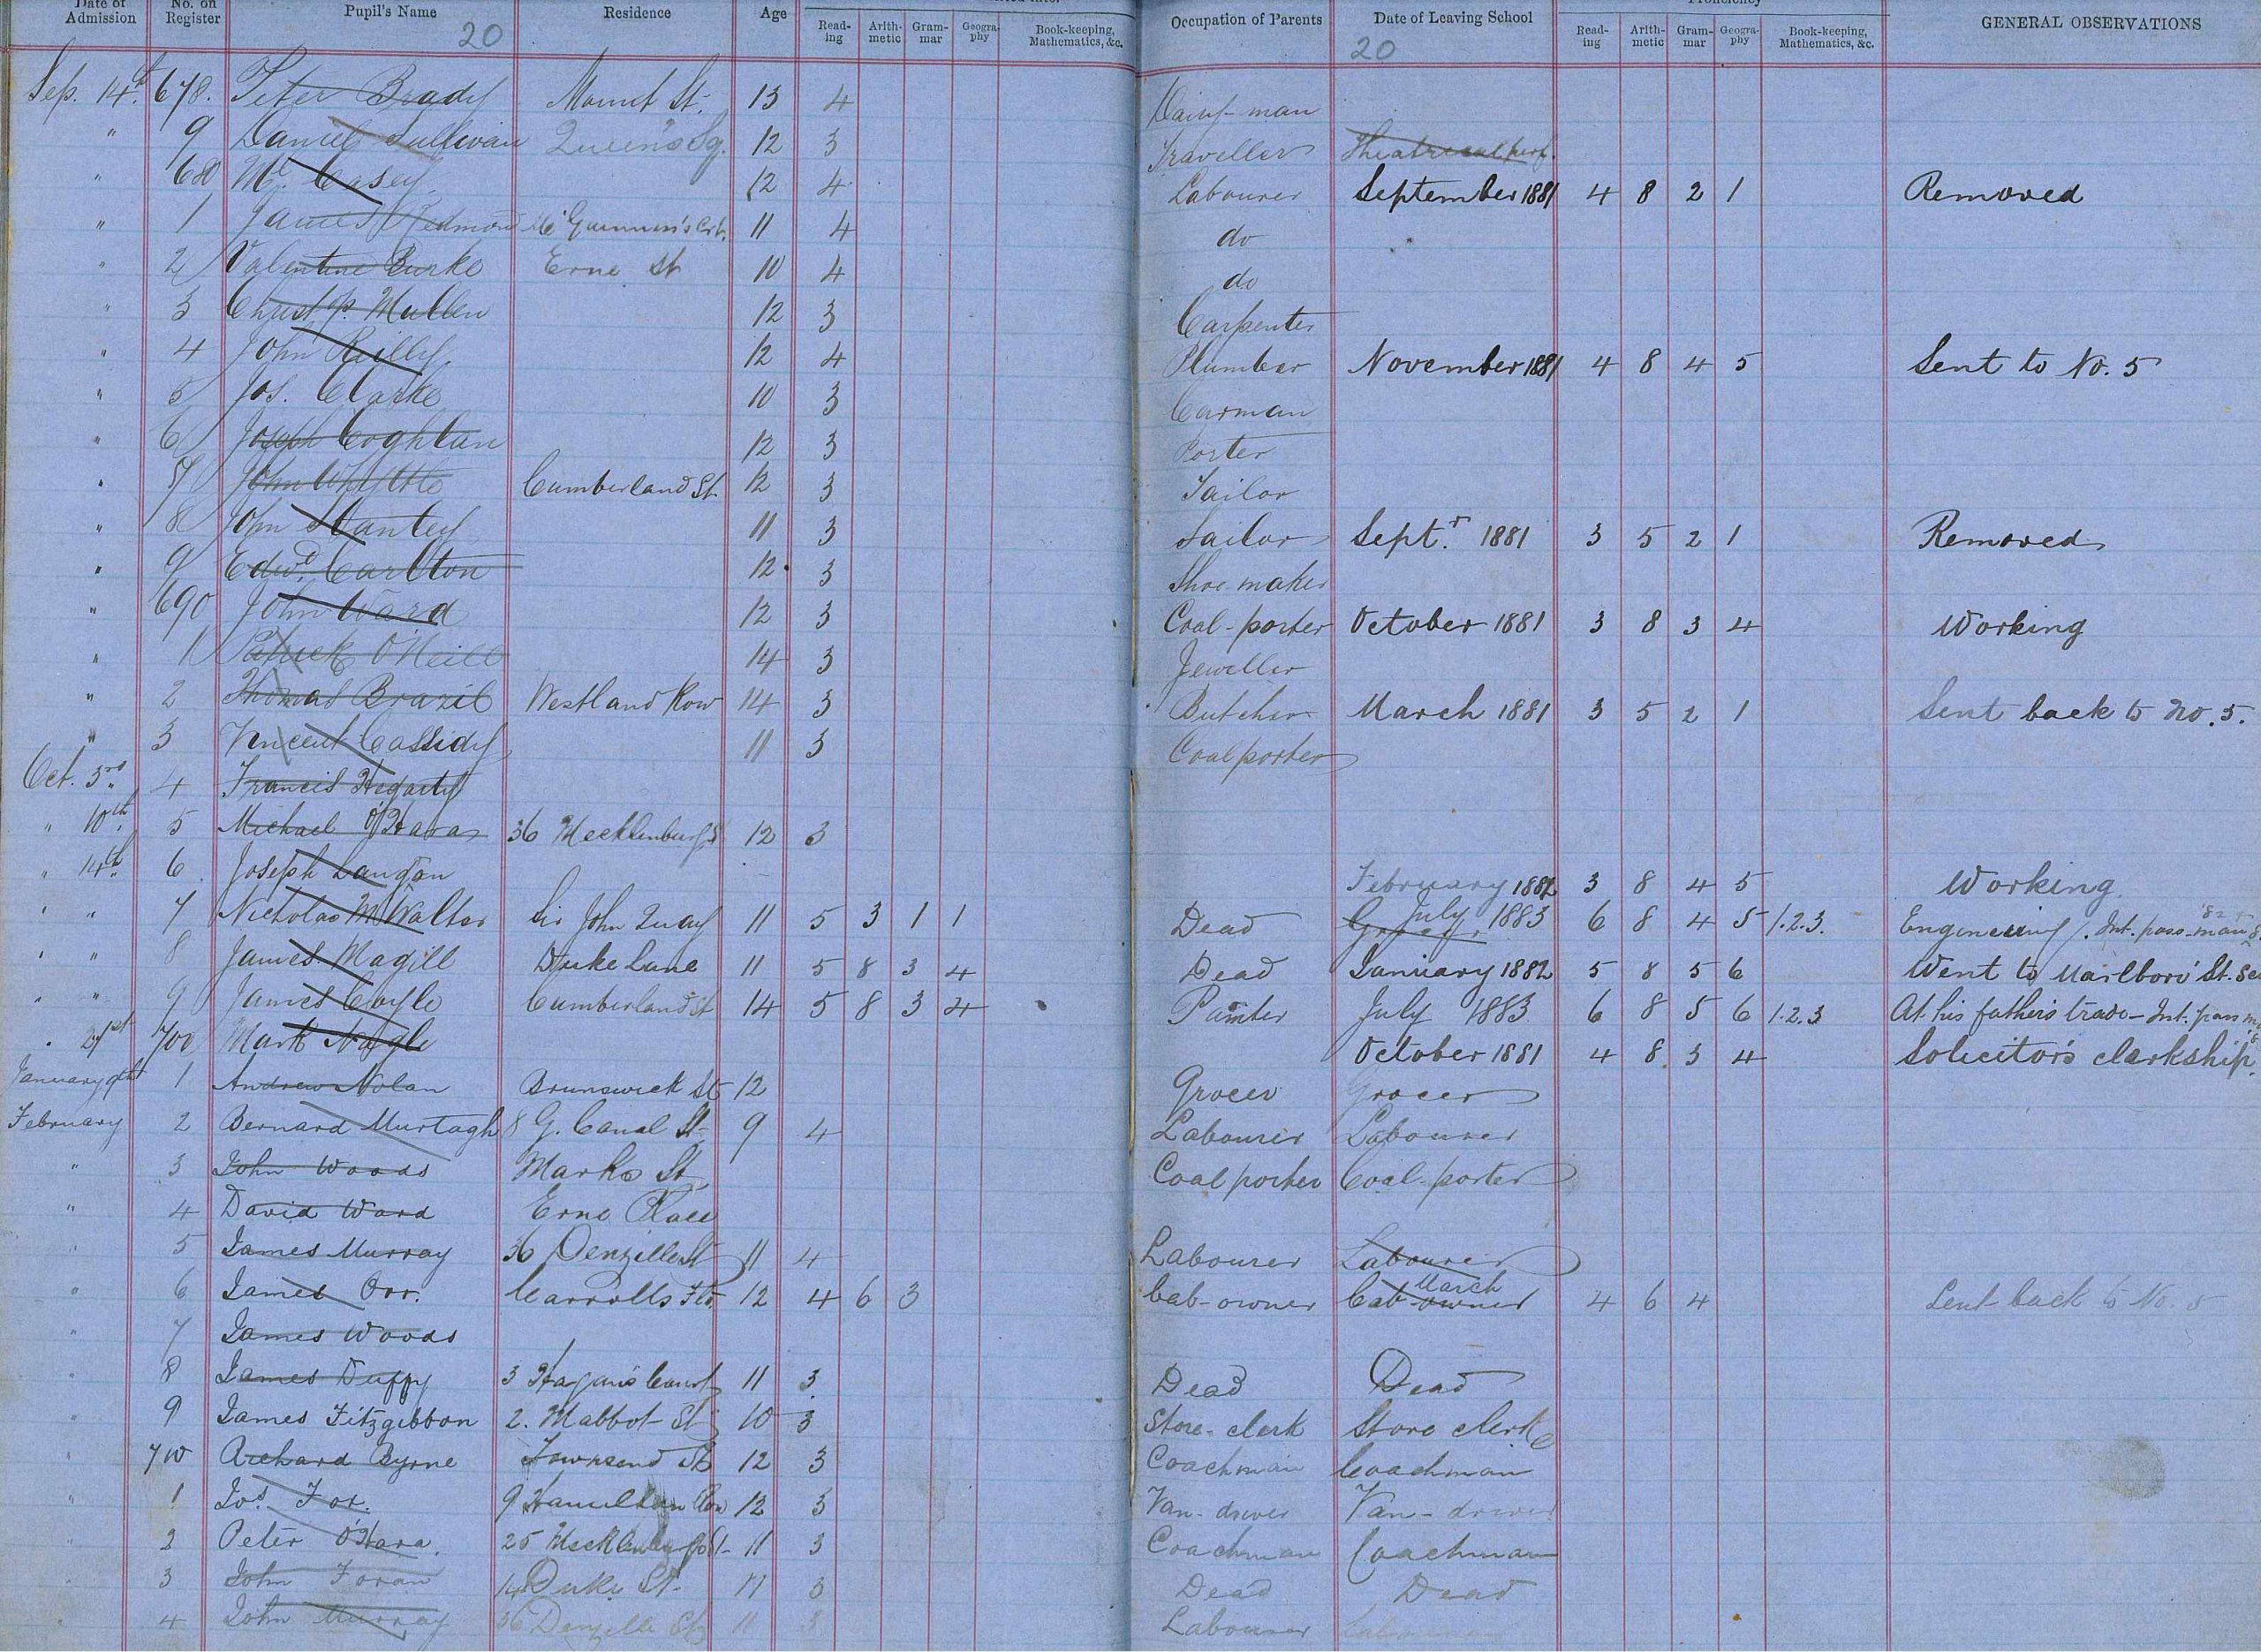 Date of Admission No. on Register Pupil's Name Residence Age Read-ing Arith-metic Gram-mar Geogra-phy Book-keeping, Mathematics, &c. Occupation of Parents Date of Leaving School Proficiency Read-ing Arith-metic Gram-mar Geogra-phy Book-keeping, Mathematics, &c. GENERAL OBSERVATIONS
20 20
Sep. 14th. 678. Peter Brady Mount St. 13 4 Dairy-man
" 9 Daniel Sullivan Queen's Sq. 12 3 Traveller Theatrical perf.
" 680 Ml. Casey. 12 4 Labourer September 1881 4 8 2 1 Removed
" 1 James Redmond Mc Guinness's Crt. 11 4 do
" 2 Valentine Burke Erne St 10 4 do
" 3 Christop. Mullen 12 3 Carpenter
" 4 John Reilly. 12 4 Plumber November 1881 4 8 4 5 Sent to No. 5
" 5 Jos. Clarke 10 3 Carman
" 6 Joseph Coghlan 12 3 Porter
" 7 John Whytte Cumberland St 12 3 Tailor
" 8 John Stanley 11 3 Sailor Septr. 1881 3 5 2 1 Removed
" 9 Edwd. Carlton 12 3 Shoe maker
" 690 John Ward 12 3 Coal-porter October 1881 3 8 3 4 Working
" 1 Patrick O'Neill 14 3 Jeweller
" 2 Thomas Brazil Westland Row 14 3 Butcher March 1881 3 5 2 1 Sent back to No. 5.
" 3 Vincent Cassidy 11 3 Coal porter
Oct. 3rd. 4 Francis Hegarty
" 10th. 5 Michael O'Hara 36 Mecklenburg St 12 3
" 14th. 6. Joseph Langan February 1882 3 8 4 5 Working.
" " 7 Nicholas McWalter Sir John Quay 11 5 3 1 1 Dead Grocer July 1883 6 8 4 5 1.2.3. Engineering. Int. pass-man '82
" " 8 James Magill Duke Lane 11 5 8 3 4 Dead January 1882 5 8 5 6 Went to Marlboro' St.
" " 9 James Coyle Cumberland St 14 5 8 3 4 Painter July 1883 6 8 5 6 1.2.3 At his father's trade - Int. pass
" 21st 700 Mark Nagle October 1881 4 8 3 4 Solicitor's clerkship.
January 9th 1 Andrew Nolan Brunswick St 12 Grocer Grocer
February 2 Bernard Murtagh 8 G. Canal St 9 4 Labourer Labourer
" 3 John Woods Marks St Coal porter Coal-porter
" 4 David Ward Erne Place
" 5 James Murray 36 Denzille St 11 4 Labourer Labourer
" 6 James Orr. Carrolls 12 4 6 3 Cab-owner Cab-owner March 4 6 4 Sent back to No. 5
" 7 James Woods
" 8 James Duffy 3 Hagan's Court 11 3 Dead Dead
" 9 James Fitzgibbon 2. Mabbot St 10 3 Store-clerk Store clerk
" 710 Richard Byrne Townsend St 12 3 Coachman Coachman
" 1 Jos. Fox. 9 Hamilton Row 12 3 Van-driver Van-driver
" 2 Peter O'Hara. 25 Mecklenburg St 11 3 Coachman Coachman
" 3 John Foran 14 Duke St. 11 3 Dead Dead
" 4 John Murray 36 Denzille St 11 3 Labourer Labourer